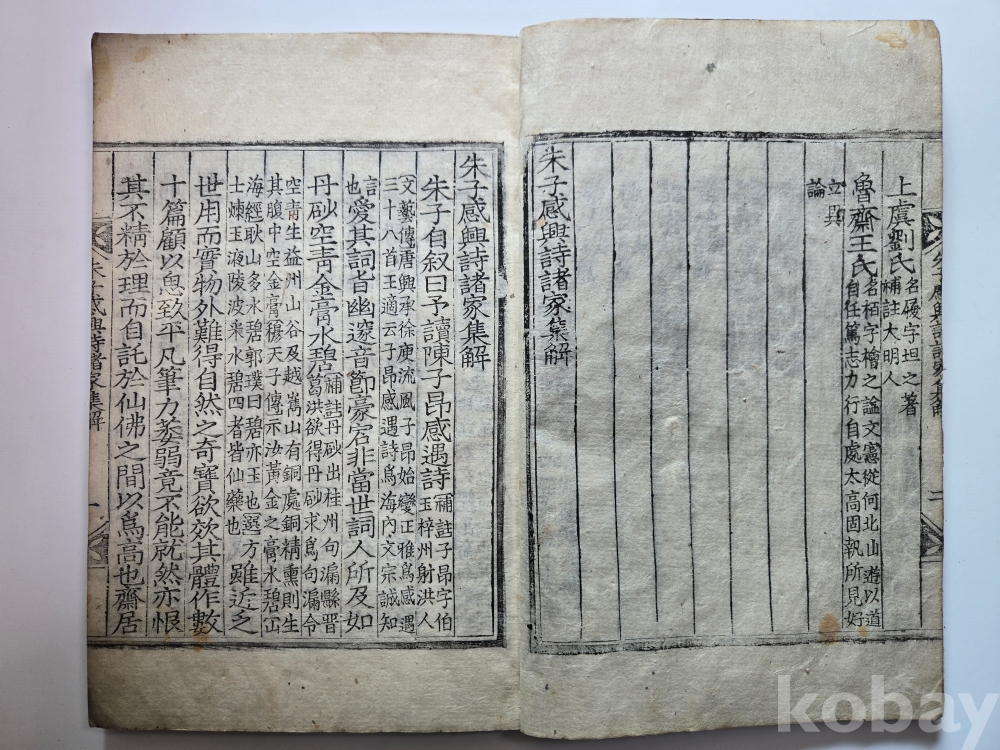 上虞劉氏名履字坦之著
補註大明人
魯齋王氏名栢字檜之謚文憲從何北山遊以道
自任篤志力行自處太高固執所見好
立異
論
朱子感興詩諸家集解
朱子感興詩諸家集解
朱子自叙曰予讀陳子昂感遇詩補註子昂字伯
玉梓州射洪人
文藝傳唐興承徐庾流風子昂始變正雅爲感遇
三十八首王適云子昂感遇詩爲海內文宗誠知
言
也愛其詞旨幽邃音節豪宕非當世詞人所及如
丹砂空青金膏水碧補註丹砂出桂州句漏縣晋
葛洪欲得丹砂求爲句漏令
空青生益州山谷及越嶲山有銅處銅精熏則生
其腹中空金膏穆天子傳示汝黃金之膏水碧山
海經耿山多水碧郭璞曰碧亦玉也選方
士煉玉液陵波采水碧四者皆仙藥也
雖近乏
世用而實物外難得自然之奇寶欲效其體作數
十篇顧以思致平凡筆力萎弱竟不能就然亦恨
其不精於理而自託於仙佛之間以爲高也齋居
朱子感興詩諸家集解
一